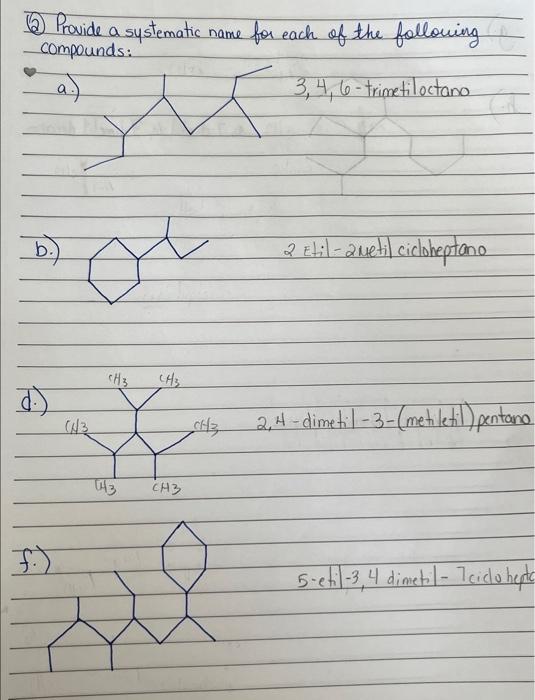 ② Provide a systematic name for each of the following
compounds:
a.)
3,4,6-trimetiloctano
b.)
2 Etil-2metil cicloheptano
d.)
CH3 CH3
CH3 CH3
CH3 CH3
2,4-dimetil-3-(metiletil)pentano
f.)
5-etil-3,4 dimetil-7ciclohepta